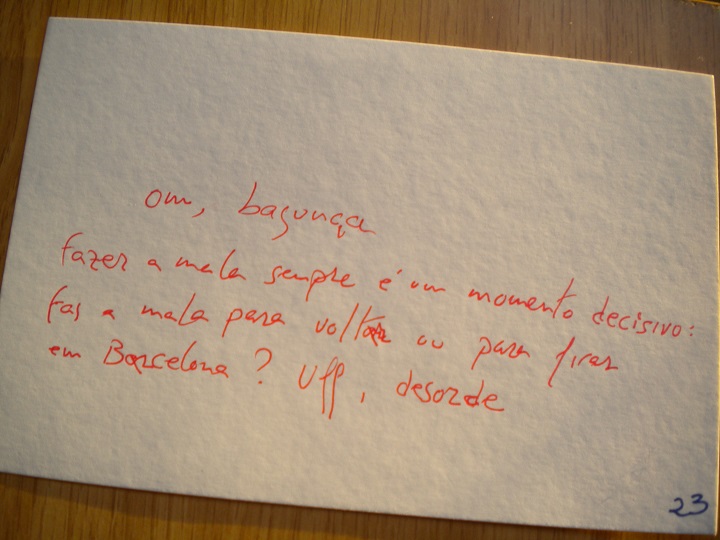 om, bagunça
fazer a mala sempre é um momento decisivo:
fas a mala para voltar ou para ficar
em Barcelona? Uff, desorde
23